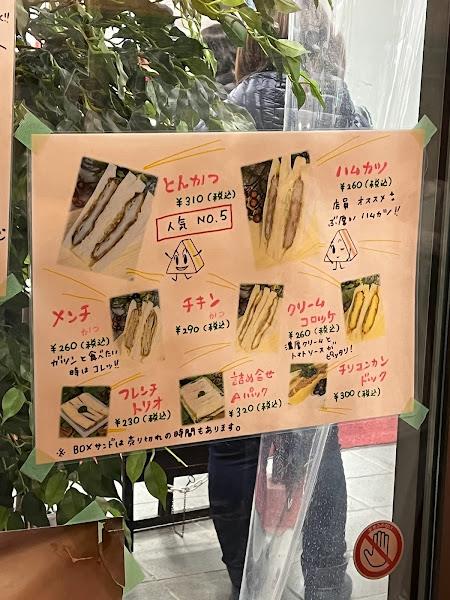 とんかつ
¥310(税込)
人気 NO.5
ハムカツ
¥260(税込)
店員 オススメ
ぶ厚い ハムカツ!!
メンチ
かつ
¥260(税込)
ガツンと食べたい
時はコレッ!!
チキン
かつ
¥290(税込)
クリーム
コロッケ
¥260(税込)
濃厚クリームと
トマトソースが
ピッタリ!
フレンチ
トリオ
¥230(税込)
詰め合せ
Aパック
¥320(税込)
チリコンカン
ドック
¥300(税込)
※ BOXサンドは売り切れの時間もあります。